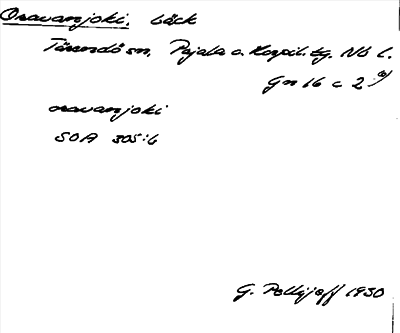 Oravanjoki, bäck
Tärendö sn, Pajala o. Korpil. tg. Nb l.
Gn 16 c 2 a)
oravanjoki
SOA 305:6
G. Pellijeff 1930